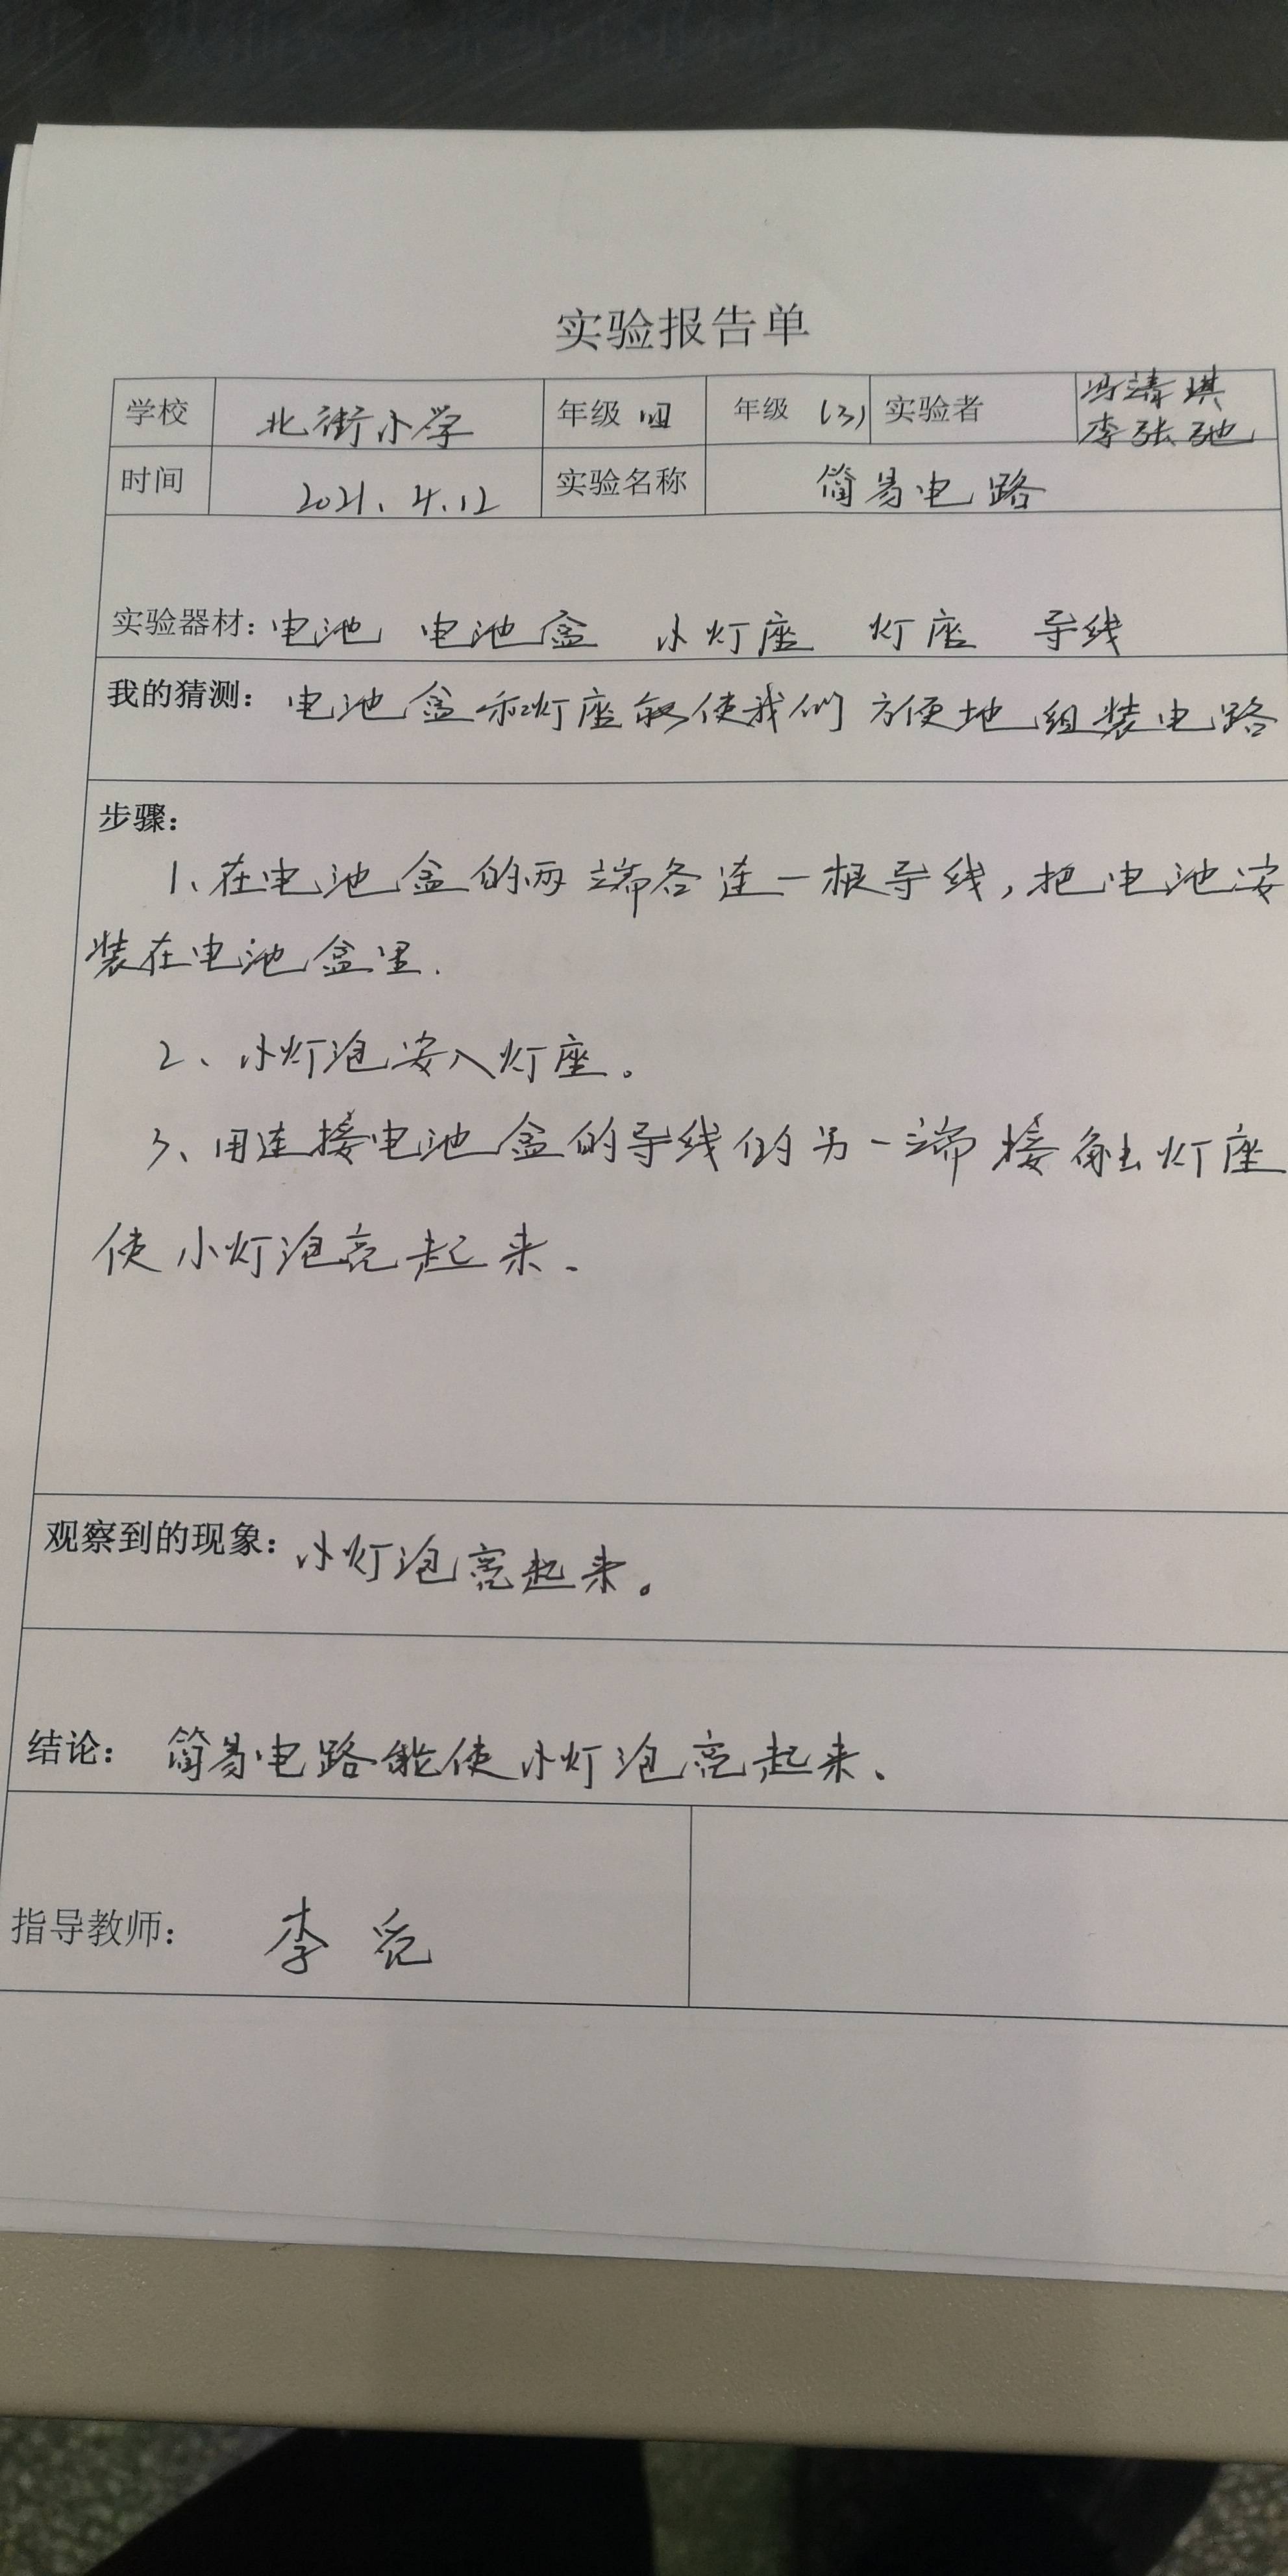 实验报告单
学校 北街小学 年级 四 年级 (3) 实验者 冯清琪
李张弛
时间 2021.4.12 实验名称 简易电路
实验器材：电池 电池盒 小灯座 灯座 导线
我的猜测：电池盒和灯座能使我们方便地组装电路
步骤：
1、在电池盒的两端各连一根导线，把电池安
装在电池盒里.
2、小灯泡安入灯座。
3、用连接电池盒的导线的另一端接触灯座
使小灯泡亮起来.
观察到的现象：小灯泡亮起来。
结论：简易电路能使小灯泡亮起来、
指导教师：李